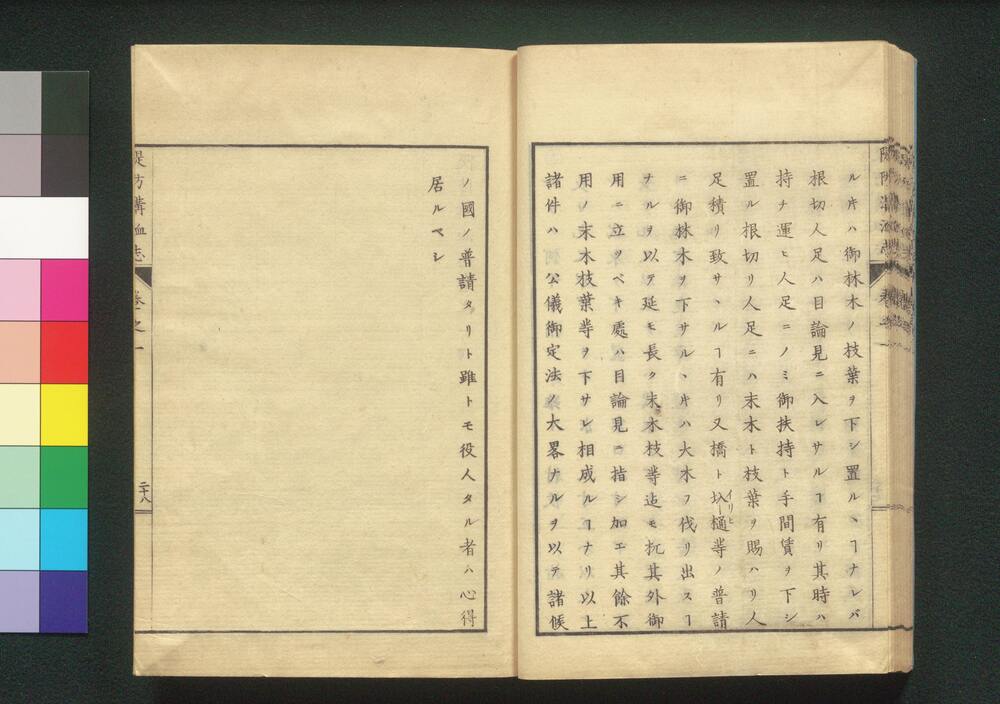 ル片ハ御林木ノ枝葉ヲ下シ置ルヽヿナレバ
根切人足ハ目論見ニ入レサルヿ有リ其時ハ
持チ運ヒ人足ニノミ御扶持ト手間賃ヲ下シ
置ル根切リ人足ニハ末木ト枝葉ヲ賜ハリ人
足積リ致サヽルヿ有リ又橋ト圦樋等ノ普請
イリヒ
ニ御林木ヲ下サルヽ片ハ大木ヲ伐リ出スヿ
ナルヲ以テ延モ長ク末木枝等迠モ杭其外御
用ニ立ツベキ處ハ目論見ニ指シ加エ其餘不
用ノ末木枝葉等ヲ下サレ相成ルヿナリ以上
諸件ハ公儀御定法ノ大畧ナルヲ以テ諸候
ノ國ノ普請タリト雖トモ役人タル者ハ心得
居ルベシ
堤防溝洫志
卷之一
二十八